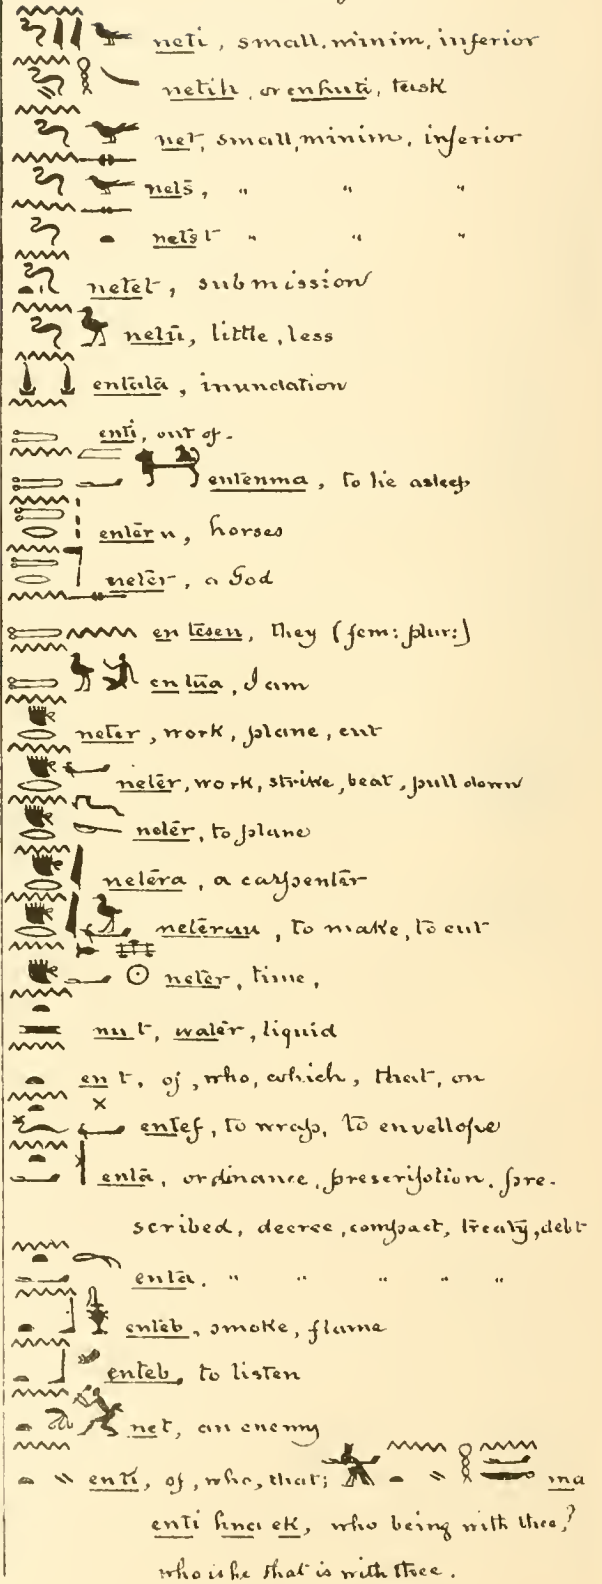 neti, small, minim, inferior
netih, or enhuti, tusk
net, small, minim, inferior
nets, " " "
netst " " "
netet, submission
netu, little, less
entata, inundation
enti, out of.
entenma, to lie asleep
enteru, horses
neter, a God
entesen, they (fem: plur:)
entua, I am
neter, work, plane, cut
neter, work, strike, beat, pull down
neter, to plane
netera, a carpenter
neteruu, to make, to cut
neter, time,
nut, water, liquid
ent, of, who, which, that, on
entef, to wrap, to envellope
enta, ordinance, prescription, pre-
scribed, decree, compact, treaty, debt
enta, " " " " "
enteb, smoke, flame
enteb, to listen
net, an enemy
enti, of, who, that; ma
enti hna ek, who being with thee?
who is he that is with thee.